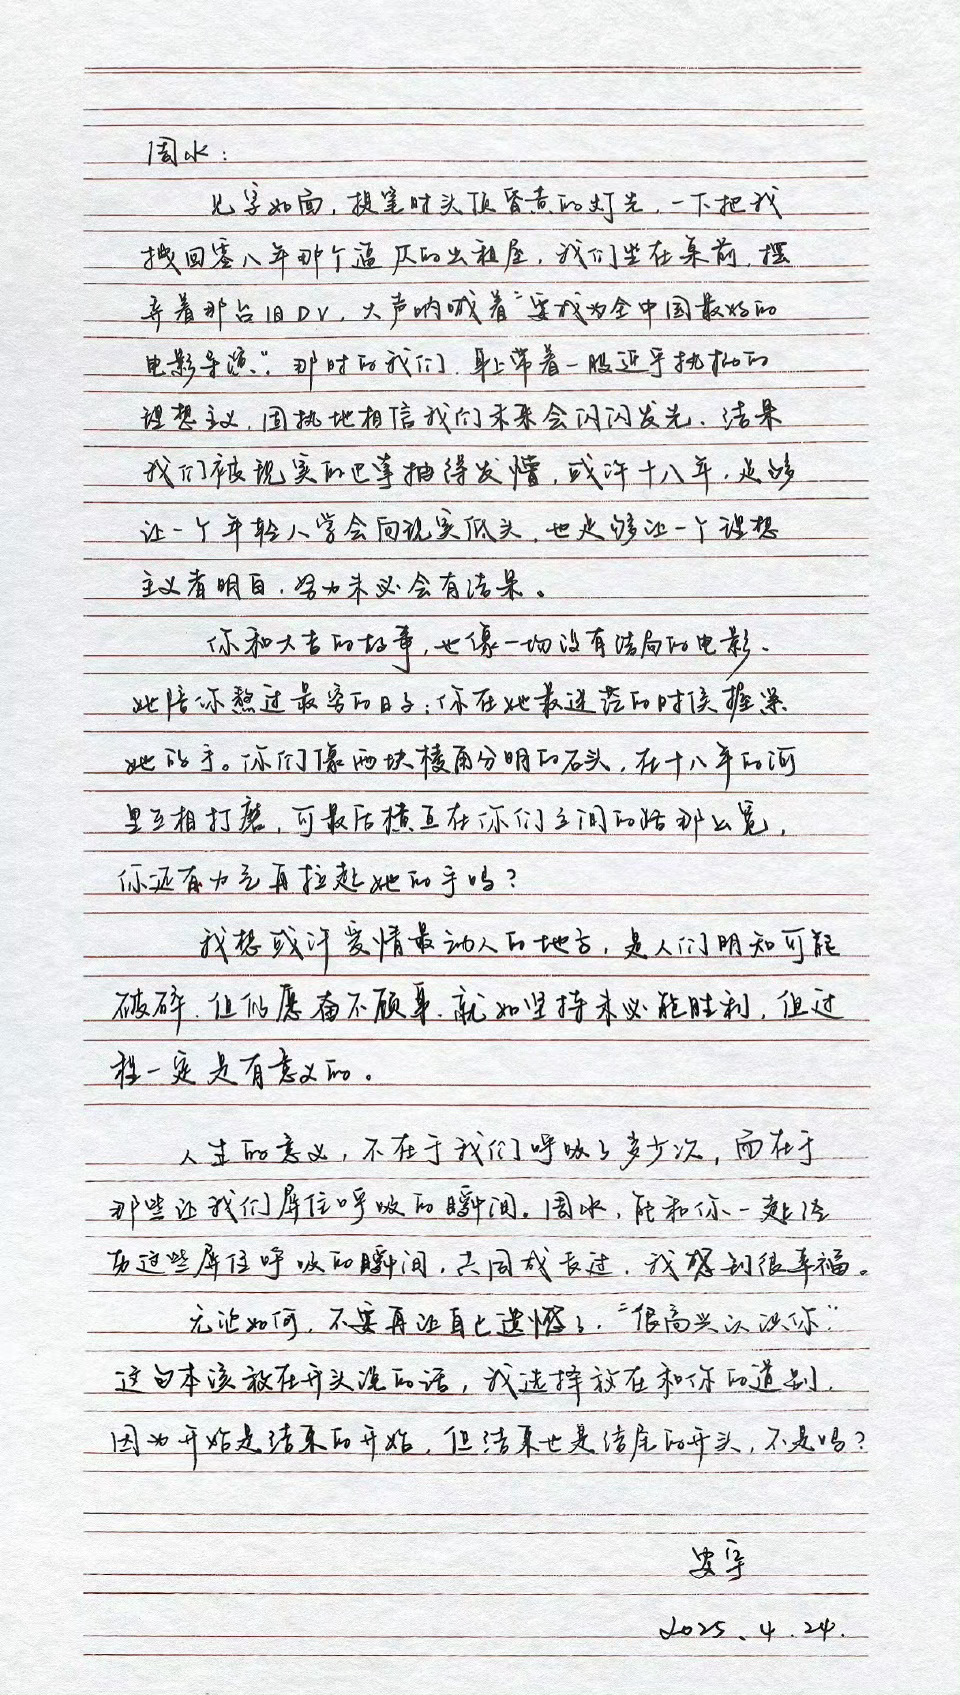 周水：
见字如面，提笔时头顶昏黄的灯光，一下把我
拽回零八年那个逼仄的出租屋，我们坐在桌前，摆
弄着那台旧DV，大声呐喊着“要成为全中国最好的
电影导演”。那时的我们，身上带着一股近乎执拗的
理想主义，固执地相信我们未来会闪闪发光、结果
我们被现实的巴掌抽得发懵，或许十八年，足够
让一个年轻人学会向现实低头，也足够让一个理想
主义者明白，努力未必会有结果。
你和大吉的故事，也像一场没有结局的电影、
她陪你熬过最穷的日子；你在她最迷茫的时候握紧
她的手。你们像两块棱角分明的石头，在十八年的河
里互相打磨，可最后横亘在你们之间的路那么宽，
你还有力气再拉起她的手吗？
我想或许爱情最动人的地方，是人们明知可能
破碎、但仍愿奋不顾身、就如坚持未必能胜利，但过
程一定是有意义的。
人生的意义，不在于我们呼吸了多少次，而在于
那些让我们屏住呼吸的瞬间。周水，能和你一起经
历这些屏住呼吸的瞬间，共同成长过，我感到很幸福。
无论如何，不要再让自己遗憾了，“很高兴认识你”
这句本该放在开头说的话，我选择放在和你的道别，
因为开始是结束的开始，但结束也是结尾的开头，不是吗？
安宇
2025.4.24.